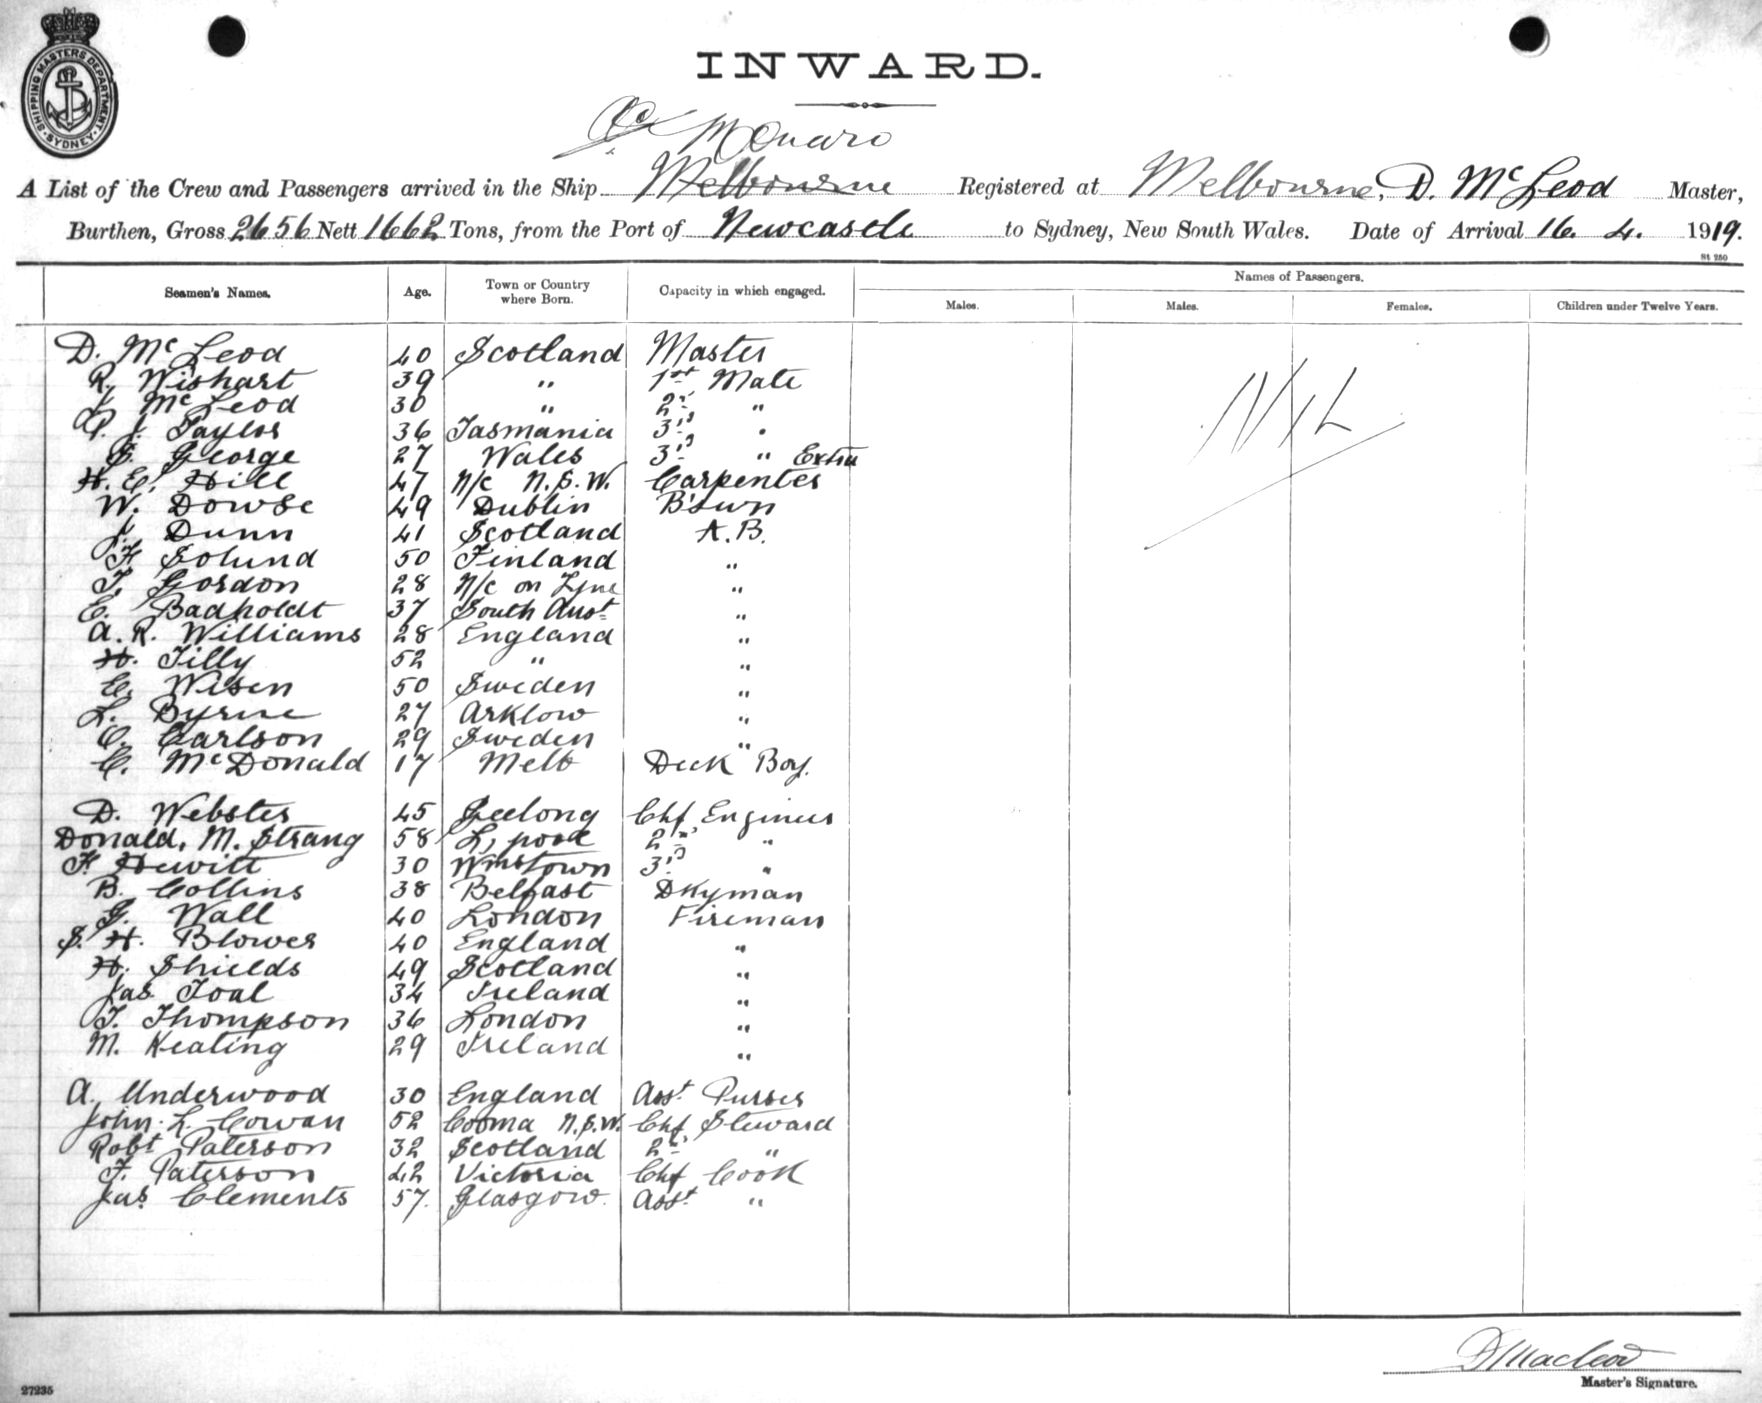 SHIPPING MASTERS DEPARTMENT SYDNEY
INWARD.
Monaro
A List of the Crew and Passengers arrived in the Ship Melbourne Registered at Melbourne, D. McLeod Master,
Burthen, Gross 2656 Nett 1662 Tons, from the Port of Newcastle to Sydney, New South Wales. Date of Arrival 16. 4. 1919.
St 250
Seamen's Names. Age. Town or Country where Born. Capacity in which engaged. Names of Passengers.
Males. Males. Females. Children under Twelve Years.
D. McLeod 40 Scotland Master
R. Wishart 39 " 1st Mate
J. McLeod 30 " 2nd "
P. J. Taylor 36 Tasmania 3rd "
George 27 Wales 3rd " Extra
H. E. Hill 47 N/c N.S.W. Carpenter
W. Dowse 49 Dublin B'swn
J. Dunn 41 Scotland A.B.
F. Solund 50 Finland "
T. Gordon 28 N/c on Tyne "
E. Badholdt 37 South Aust "
A. R. Williams 28 England "
H. Tilly 52 " "
E. Wisen 50 Sweden "
L. Byrne 27 Arklow "
C. Carlson 29 Sweden "
C. McDonald 17 Melb Deck Boy.
D. Webster 45 Geelong Chf Engineer
Donald. M. Strang 58 L'pool 2nd "
F. Hewitt 30 Wmstown 3rd "
B. Collins 38 Belfast Dkyman
G. Wall 40 London Fireman
S. H. Blower 40 England "
H. Shields 49 Scotland "
Jas Toal 34 Ireland "
T. Thompson 36 London "
M. Keating 29 Ireland "
A. Underwood 30 England Asst Purser
John. L. Cowan 52 Cooma N.S.W. Chf Steward
Robt Paterson 32 Scotland 2nd "
F. Paterson 42 Victoria Chf Cook
Jas Clements 57. Glasgow. Asst "
NIL
D Macleod
Master's Signature.
27235